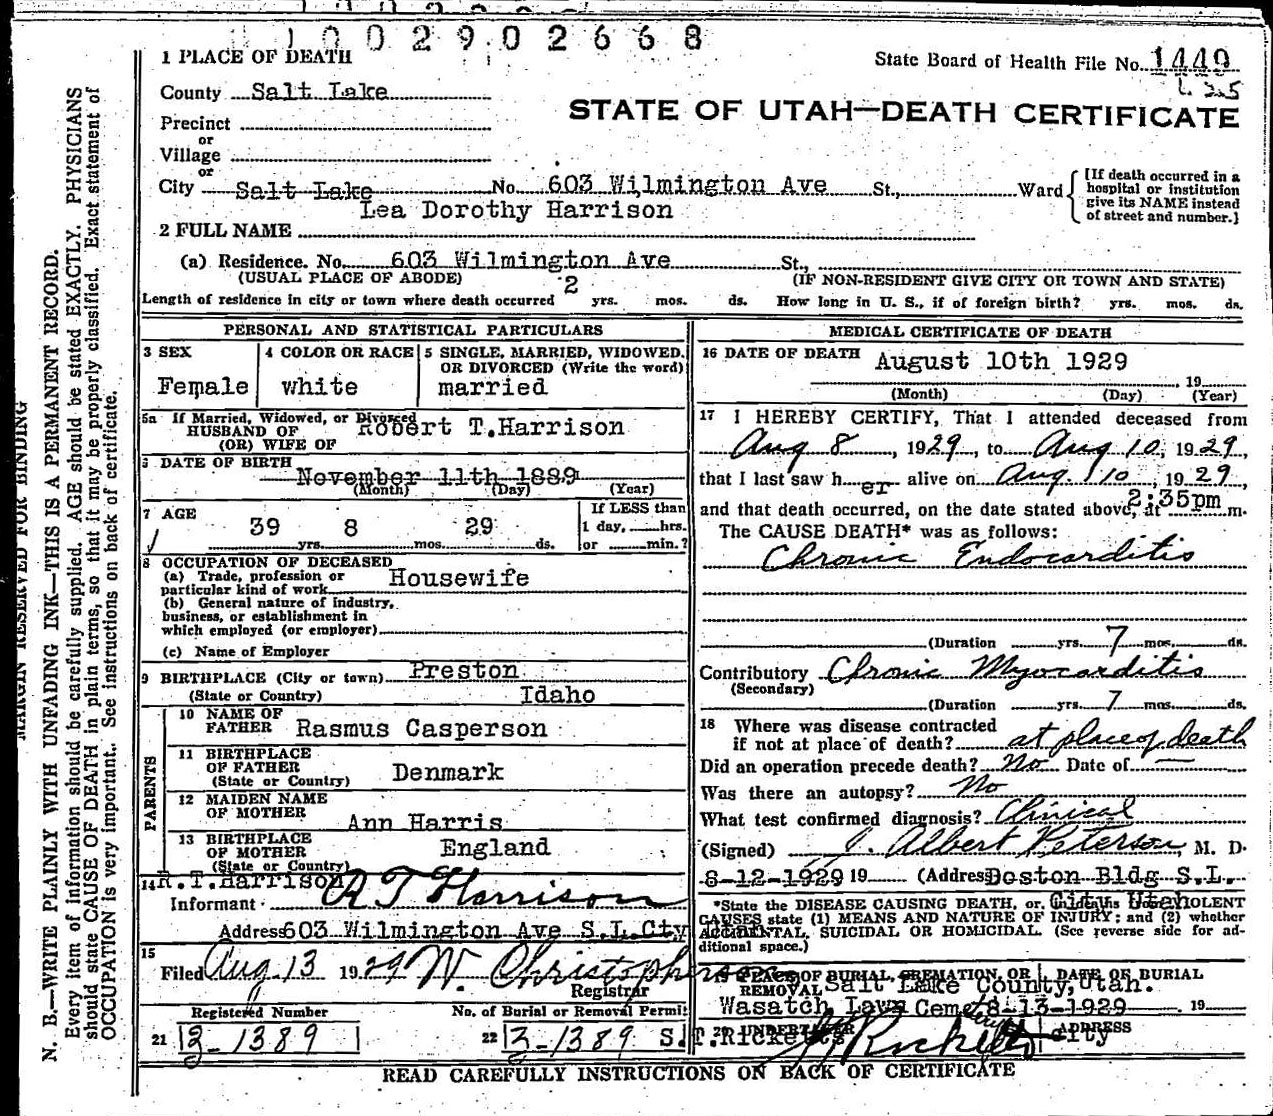 1002902668
1 PLACE OF DEATH
State Board of Health File No. 1449
County Salt Lake
STATE OF UTAH—DEATH CERTIFICATE
Precinct
or
Village
or
City Salt Lake No. 603 Wilmington Ave St., Ward
[If death occurred in a hospital or institution give its NAME instead of street and number.]
Lea Dorothy Harrison
2 FULL NAME
(a) Residence. No. 603 Wilmington Ave St.,
(USUAL PLACE OF ABODE) (IF NON-RESIDENT GIVE CITY OR TOWN AND STATE)
Length of residence in city or town where death occurred 2 yrs. mos. ds. How long in U. S., if of foreign birth? yrs. mos. ds.
PERSONAL AND STATISTICAL PARTICULARS
3 SEX
Female
4 COLOR OR RACE
white
5 SINGLE, MARRIED, WIDOWED, OR DIVORCED (Write the word)
married
5a If Married, Widowed, or Divorced
HUSBAND OF
(OR) WIFE OF
Robert T. Harrison
DATE OF BIRTH
November 11th 1889
(Month) (Day) (Year)
7 AGE
39 yrs. 8 mos. 29 ds.
If LESS than
1 day, hrs.
or min.?
8 OCCUPATION OF DECEASED
(a) Trade, profession or
particular kind of work Housewife
(b) General nature of industry,
business, or establishment in
which employed (or employer)
(c) Name of Employer
9 BIRTHPLACE (City or town) Preston
(State or Country) Idaho
PARENTS
10 NAME OF
FATHER Rasmus Casperson
11 BIRTHPLACE
OF FATHER
(State or Country) Denmark
12 MAIDEN NAME
OF MOTHER Ann Harris
13 BIRTHPLACE
OF MOTHER
(State or Country) England
14 R.T.Harrison
Informant R T Harrison
Address 603 Wilmington Ave S.L.Cty
15
Filed Aug 13 1929 W. Christopherson
Registrar
Registered Number No. of Burial or Removal Permit
21 3-1389 22 3-1389
MEDICAL CERTIFICATE OF DEATH
16 DATE OF DEATH August 10th 1929
19
(Month) (Day) (Year)
17 I HEREBY CERTIFY, That I attended deceased from
Aug 8, 1929, to Aug 10, 1929,
that I last saw h er alive on Aug. 10, 1929,
and that death occurred, on the date stated above, at 2:35pm m.
The CAUSE DEATH* was as follows:
Chronic Endocarditis
(Duration yrs. 7 mos. ds.
Contributory Chronic Myocarditis
(Secondary)
(Duration yrs. 7 mos. ds.
18 Where was disease contracted
if not at place of death? at place of death
Did an operation precede death? No Date of —
Was there an autopsy? No
What test confirmed diagnosis? Clinical
(Signed) J. Albert Peterson, M. D.
8-12-1929 19 (Address Boston Bldg S.L.
City Utah
*State the DISEASE CAUSING DEATH, or, in deaths from VIOLENT
CAUSES state (1) MEANS AND NATURE OF INJURY; and (2) whether
ACCIDENTAL, SUICIDAL OR HOMICIDAL. (See reverse side for ad-
ditional space.)
19 PLACE OF BURIAL, CREMATION, OR REMOVAL DATE OF BURIAL
Salt Lake County, Utah.
Wasatch Lawn Cem 8-13-1929 19
20 UNDERTAKER ADDRESS
S.T.Ricketts City
READ CAREFULLY INSTRUCTIONS ON BACK OF CERTIFICATE
MARGIN RESERVED FOR BINDING
N. B.—WRITE PLAINLY WITH UNFADING INK—THIS IS A PERMANENT RECORD.
Every item of information should be carefully supplied. AGE should be stated EXACTLY. PHYSICIANS
should state CAUSE OF DEATH in plain terms, so that it may be properly classified. Exact statement of
OCCUPATION is very important. See instructions on back of certificate.